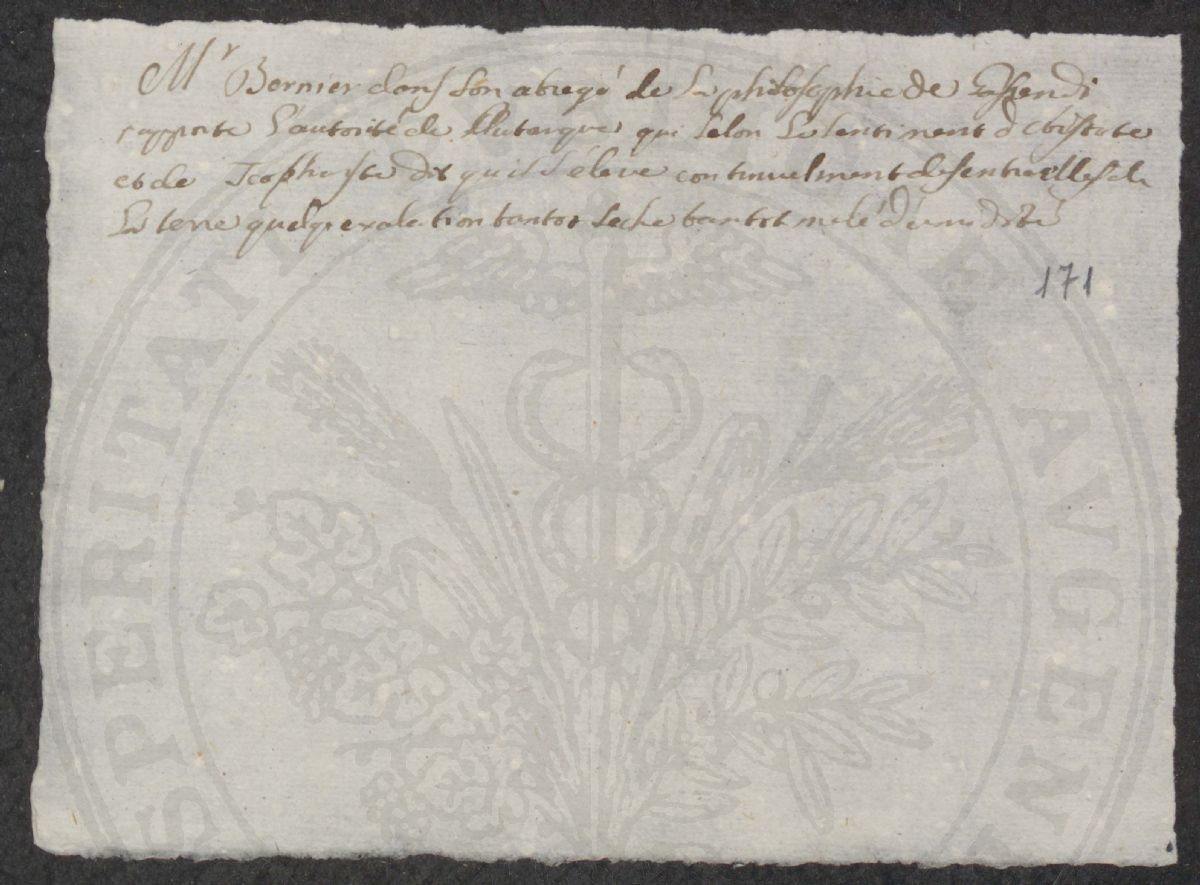 Mr Bernier dans son abregé de la philosophie de Gassendi
rapporte l'autorité de Plutarque qui selon le sentiment d'Aristote
et de Teophraste dit qu'il s'éleve continuelment des entrailles de
la terre quelque exalation tantot seche tantot melé d'umidité
171
SPERITATE
AUGEN